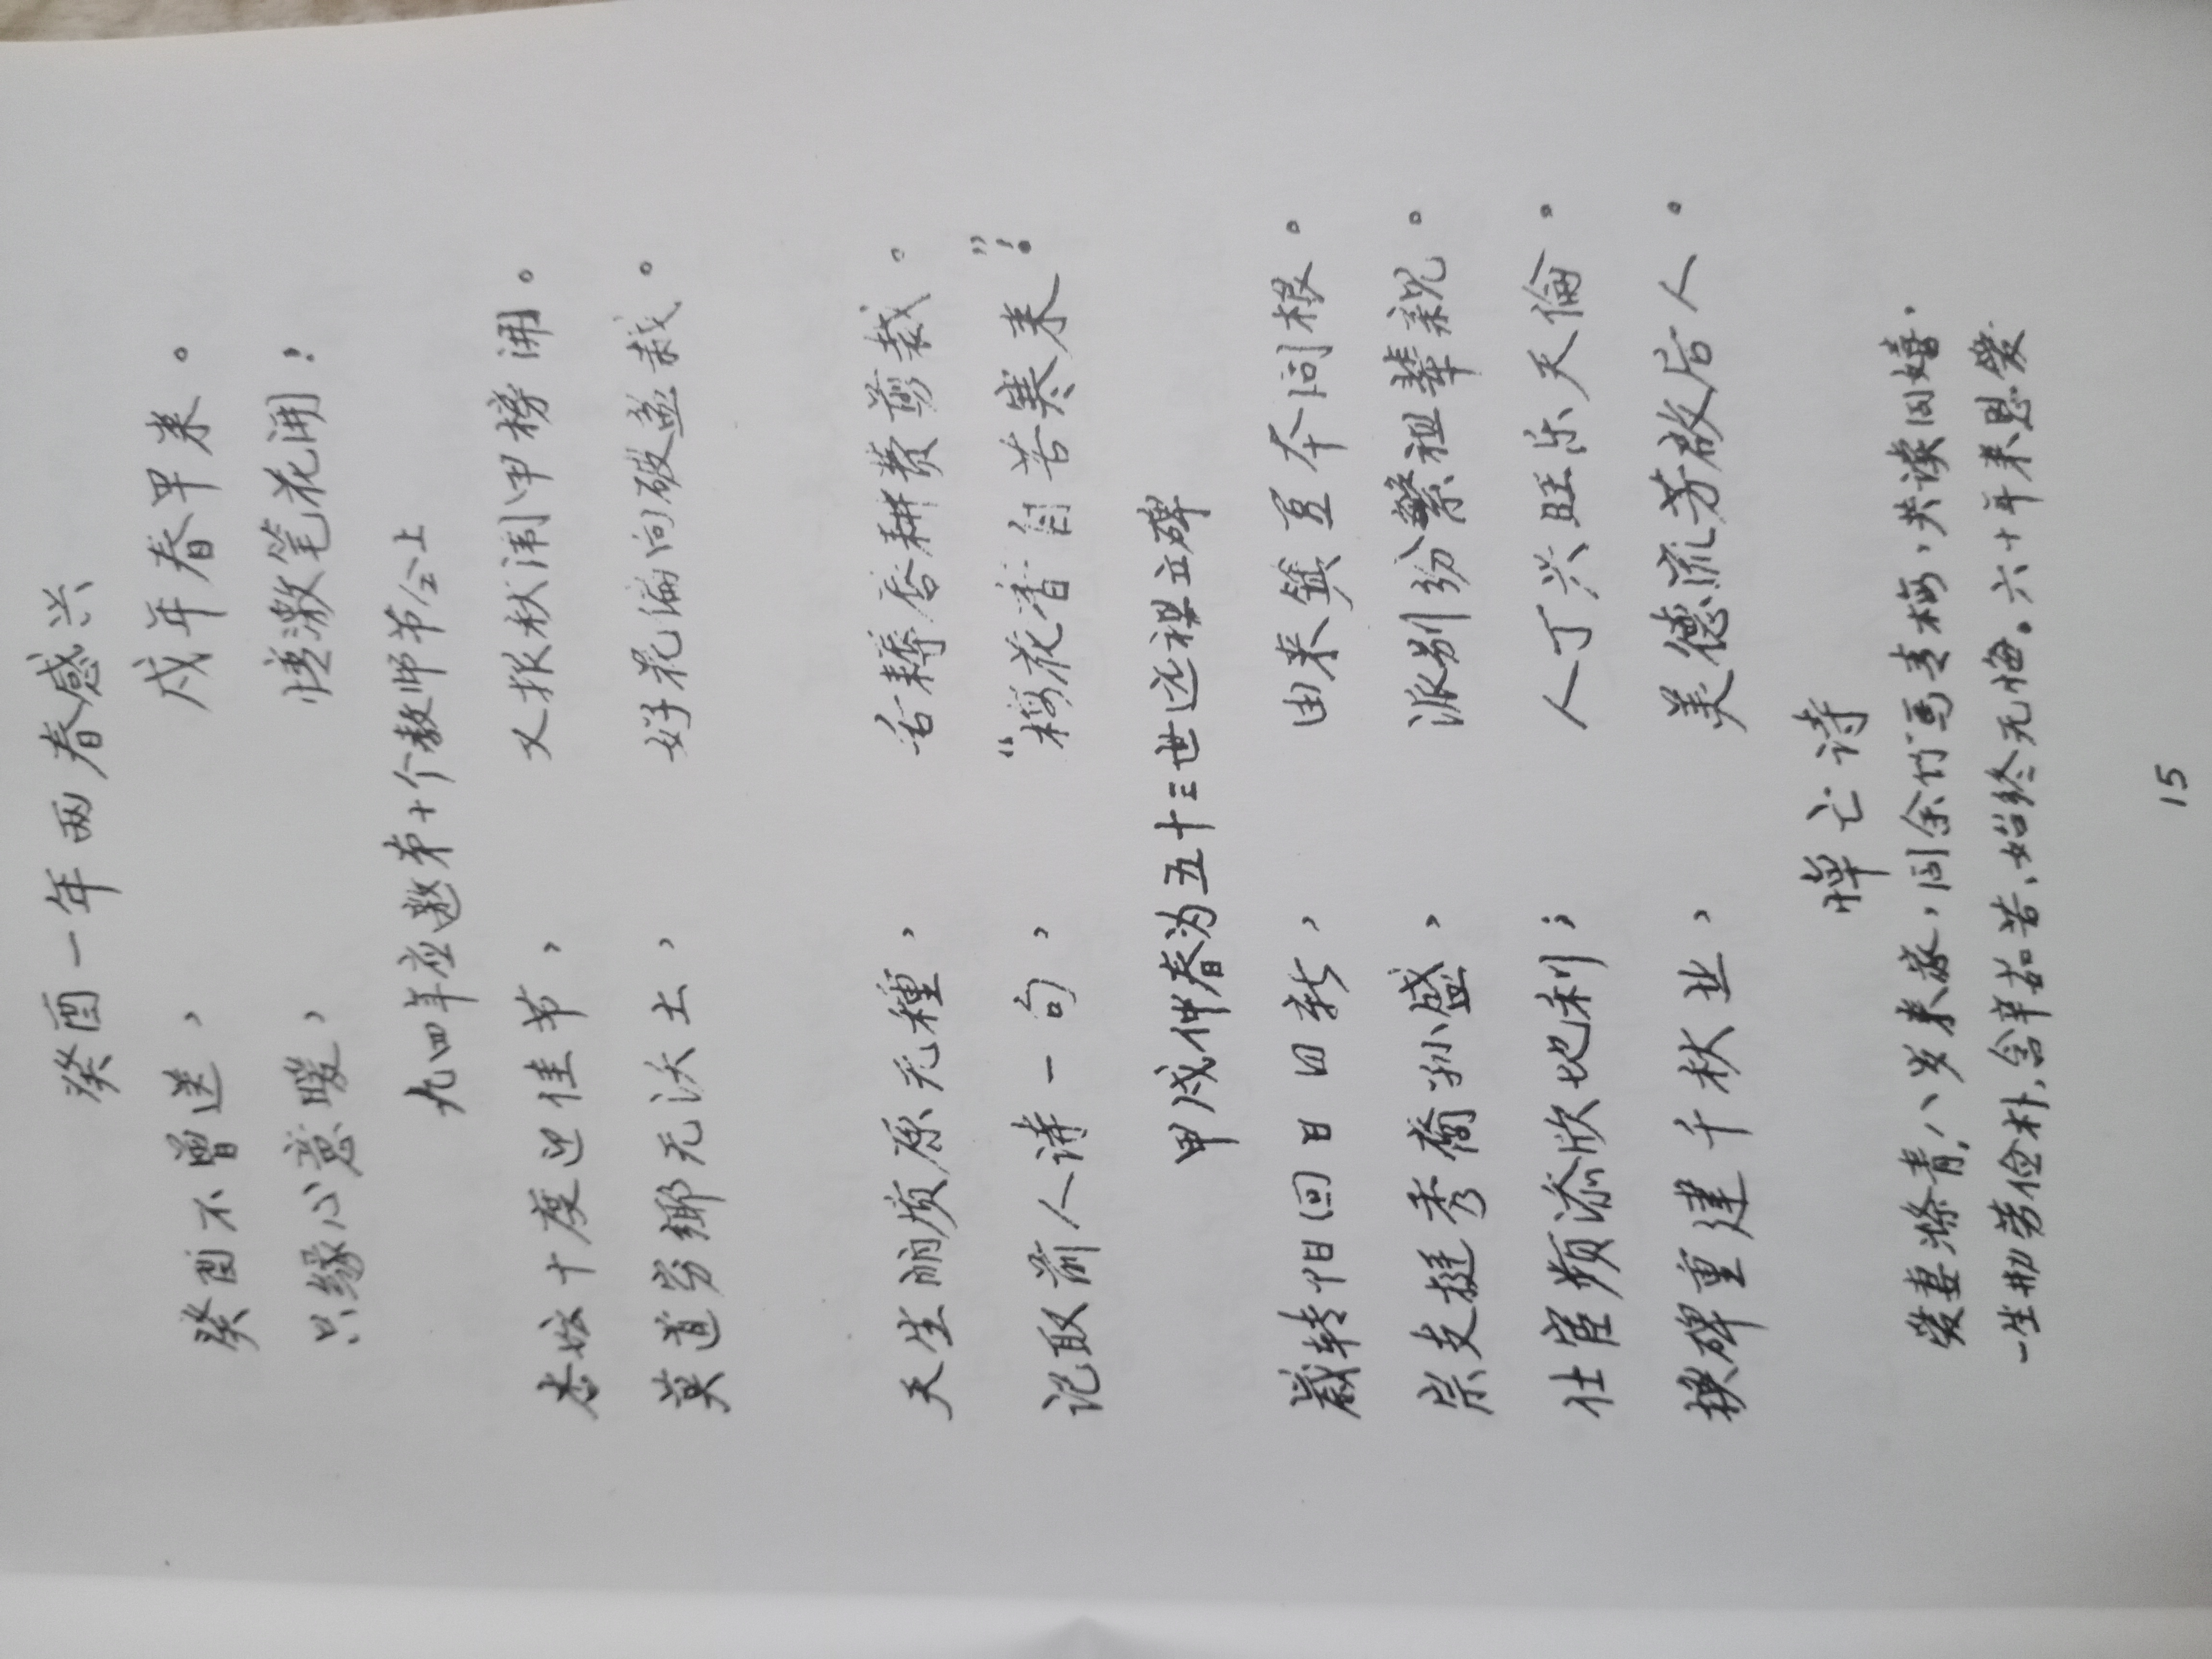 癸酉一年两春感兴
癸酉不曾送，戍年春早来。
只缘心意暖，情激笔花开！
九四年应邀第十个教师节会上
杏坛十度迎佳节，又报秋闱甲榜开。
莫道穷鄉无沃土，好花偏向破盆栽。
天生丽质原无種，舌耨唇耕费剪裁。
记取前人诗一句，“梅花香自苦寒来”！
甲戍仲春为五十三世远祖立碑
歲转阳回日日新，由来箕豆本同根。
宗支挺秀裔孙盛，派别纷繁祖辈親。
仕宦频添欣地利；人丁兴旺乐天倫。
换碑重建千秋业，美德流芳啟后人。
悼亡诗
爱妻滌青，八岁来家，同余竹马青梅，共读同嬉。
一生勤劳俭朴，含辛茹苦、始终无悔。六十年来恩爱
15